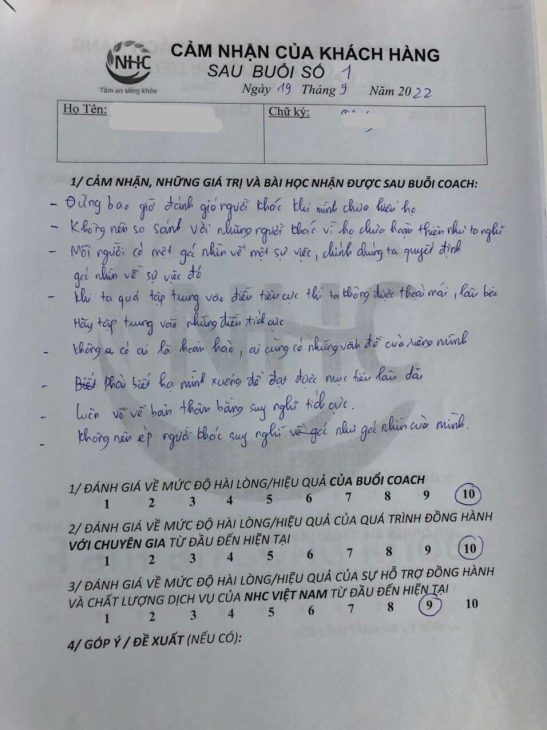 NHC
Tâm an sống khỏe
CẢM NHẬN CỦA KHÁCH HÀNG
SAU BUỔI SỐ 1
Ngày 19 Tháng 9 Năm 2022
Họ Tên: Chữ ký:
1/ CẢM NHẬN, NHỮNG GIÁ TRỊ VÀ BÀI HỌC NHẬN ĐƯỢC SAU BUỔI COACH:
- Đừng bao giờ đánh giá người khác khi mình chưa hiểu họ
- Không nên so sánh với những người khác vì họ chưa hoàn thiện như ta nghĩ
- Mỗi người có một góc nhìn về một sự việc, chính chúng ta quyết định
góc nhìn về sự việc đó
- Khi ta quá tập trung vào điều tiêu cực thì ta không được thoải mái,
Hãy tập trung vào những điều tích cực
- không có ai là hoàn hảo, ai cũng có những vấn đề của riêng mình
- Phải biết hạ mình xuống để đạt được mục tiêu lâu dài
- Luôn vỗ về bản thân bằng suy nghĩ tích cực.
- Không nên ép người khác suy nghĩ về góc như góc nhìn của mình.
1/ ĐÁNH GIÁ VỀ MỨC ĐỘ HÀI LÒNG/HIỆU QUẢ CỦA BUỔI COACH
1 2 3 4 5 6 7 8 9 10
2/ ĐÁNH GIÁ VỀ MỨC ĐỘ HÀI LÒNG/HIỆU QUẢ CỦA QUÁ TRÌNH ĐỒNG HÀNH
VỚI CHUYÊN GIA TỪ ĐẦU ĐẾN HIỆN TẠI
1 2 3 4 5 6 7 8 9 10
3/ ĐÁNH GIÁ VỀ MỨC ĐỘ HÀI LÒNG/HIỆU QUẢ CỦA SỰ HỖ TRỢ ĐỒNG HÀNH
VÀ CHẤT LƯỢNG DỊCH VỤ CỦA NHC VIỆT NAM TỪ ĐẦU ĐẾN HIỆN TẠI
1 2 3 4 5 6 7 8 9 10
4/ GÓP Ý / ĐỀ XUẤT (NẾU CÓ):